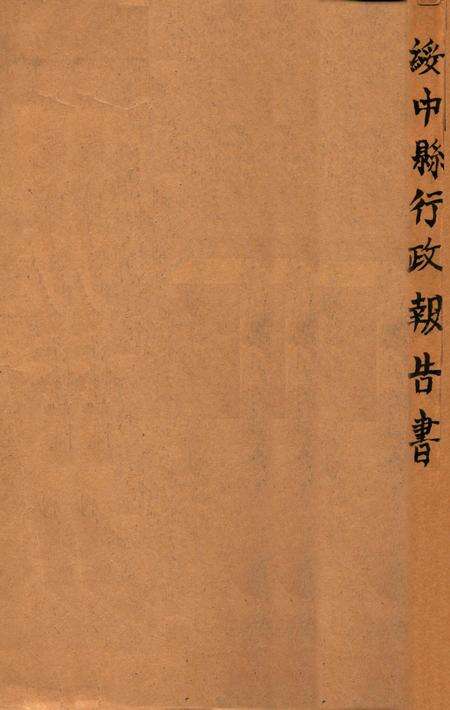 綏中縣行政報告書